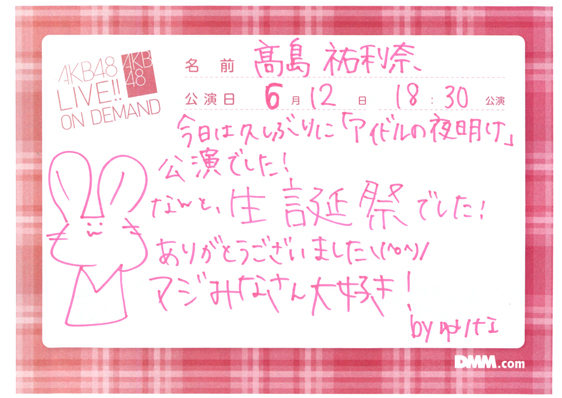 AKB48
LIVE!!
ON DEMAND
AKB
48
名前 髙島 祐利奈
公演日 6月12日 18:30公演
今日は久しぶりに「アイドルの夜明け」
公演でした!
なんと、生誕祭でした!
ありがとうございました\(^o^)/
マジみなさん大好き!
by ゆりな
DMM.com